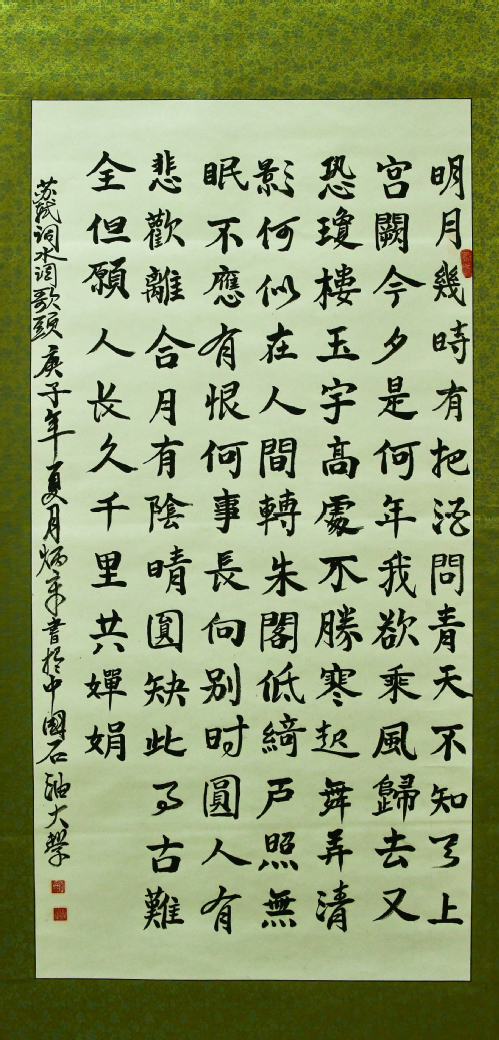 明月幾時有把酒問青天不知天上
宮闕今夕是何年我欲乘風歸去又
恐瓊樓玉宇高處不勝寒起舞弄清
影何似在人間轉朱閣低綺戶照無
眠不應有恨何事長向別時圓人有
悲歡離合月有陰晴圓缺此事古難
全但願人长久千里共嬋娟
苏轼词水调歌頭庚子年夏月炳書於中國石油大學